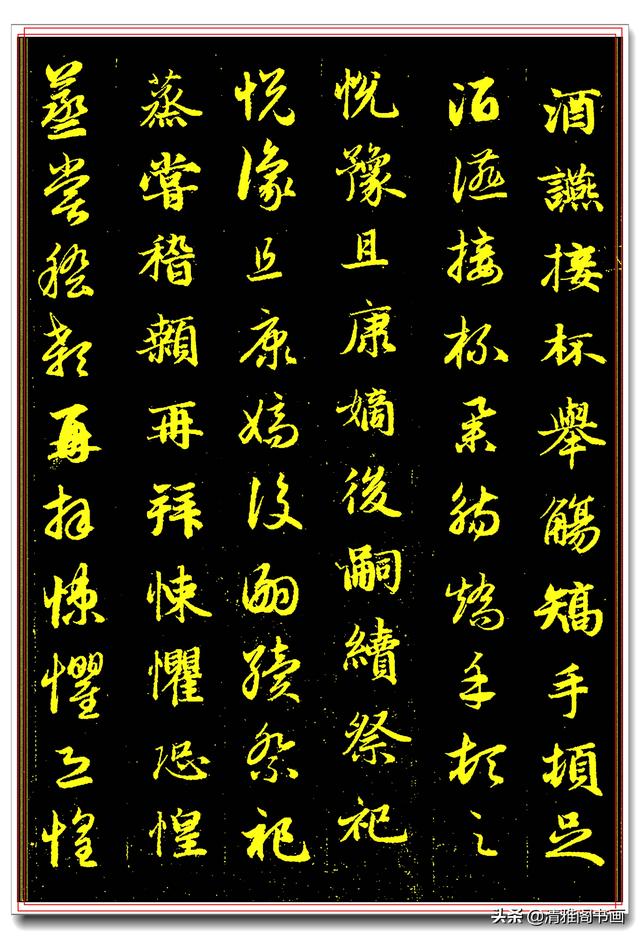 酒讌接杯舉觴矯手頓足
酒讌接杯舉觴矯手頓足
悅豫且康嫡後嗣續祭祀
悅豫且康嫡後嗣續祭祀
蒸嘗稽顙再拜悚懼恐惶
蒸嘗稽顙再拜悚懼恐惶
头条 @清雅阁书画